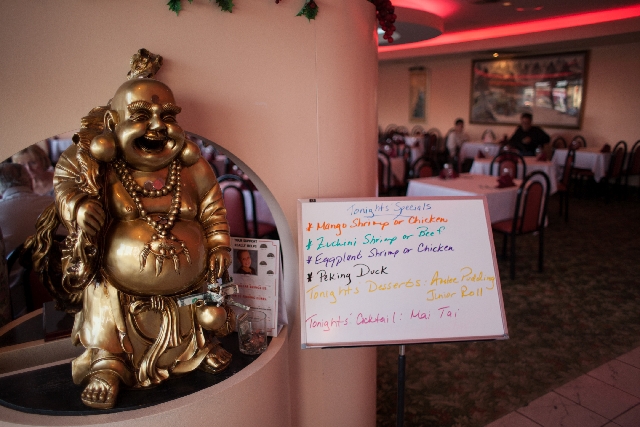 Tonights Specials
* Mango Shrimp or Chicken
* Zuchini Shrimp or Beef
* Eggplant Shrimp or Chicken
* Peking Duck
Tonights Desserts: Andre Pudding
Junior Roll
Tonights' Cocktail: Mai Tai